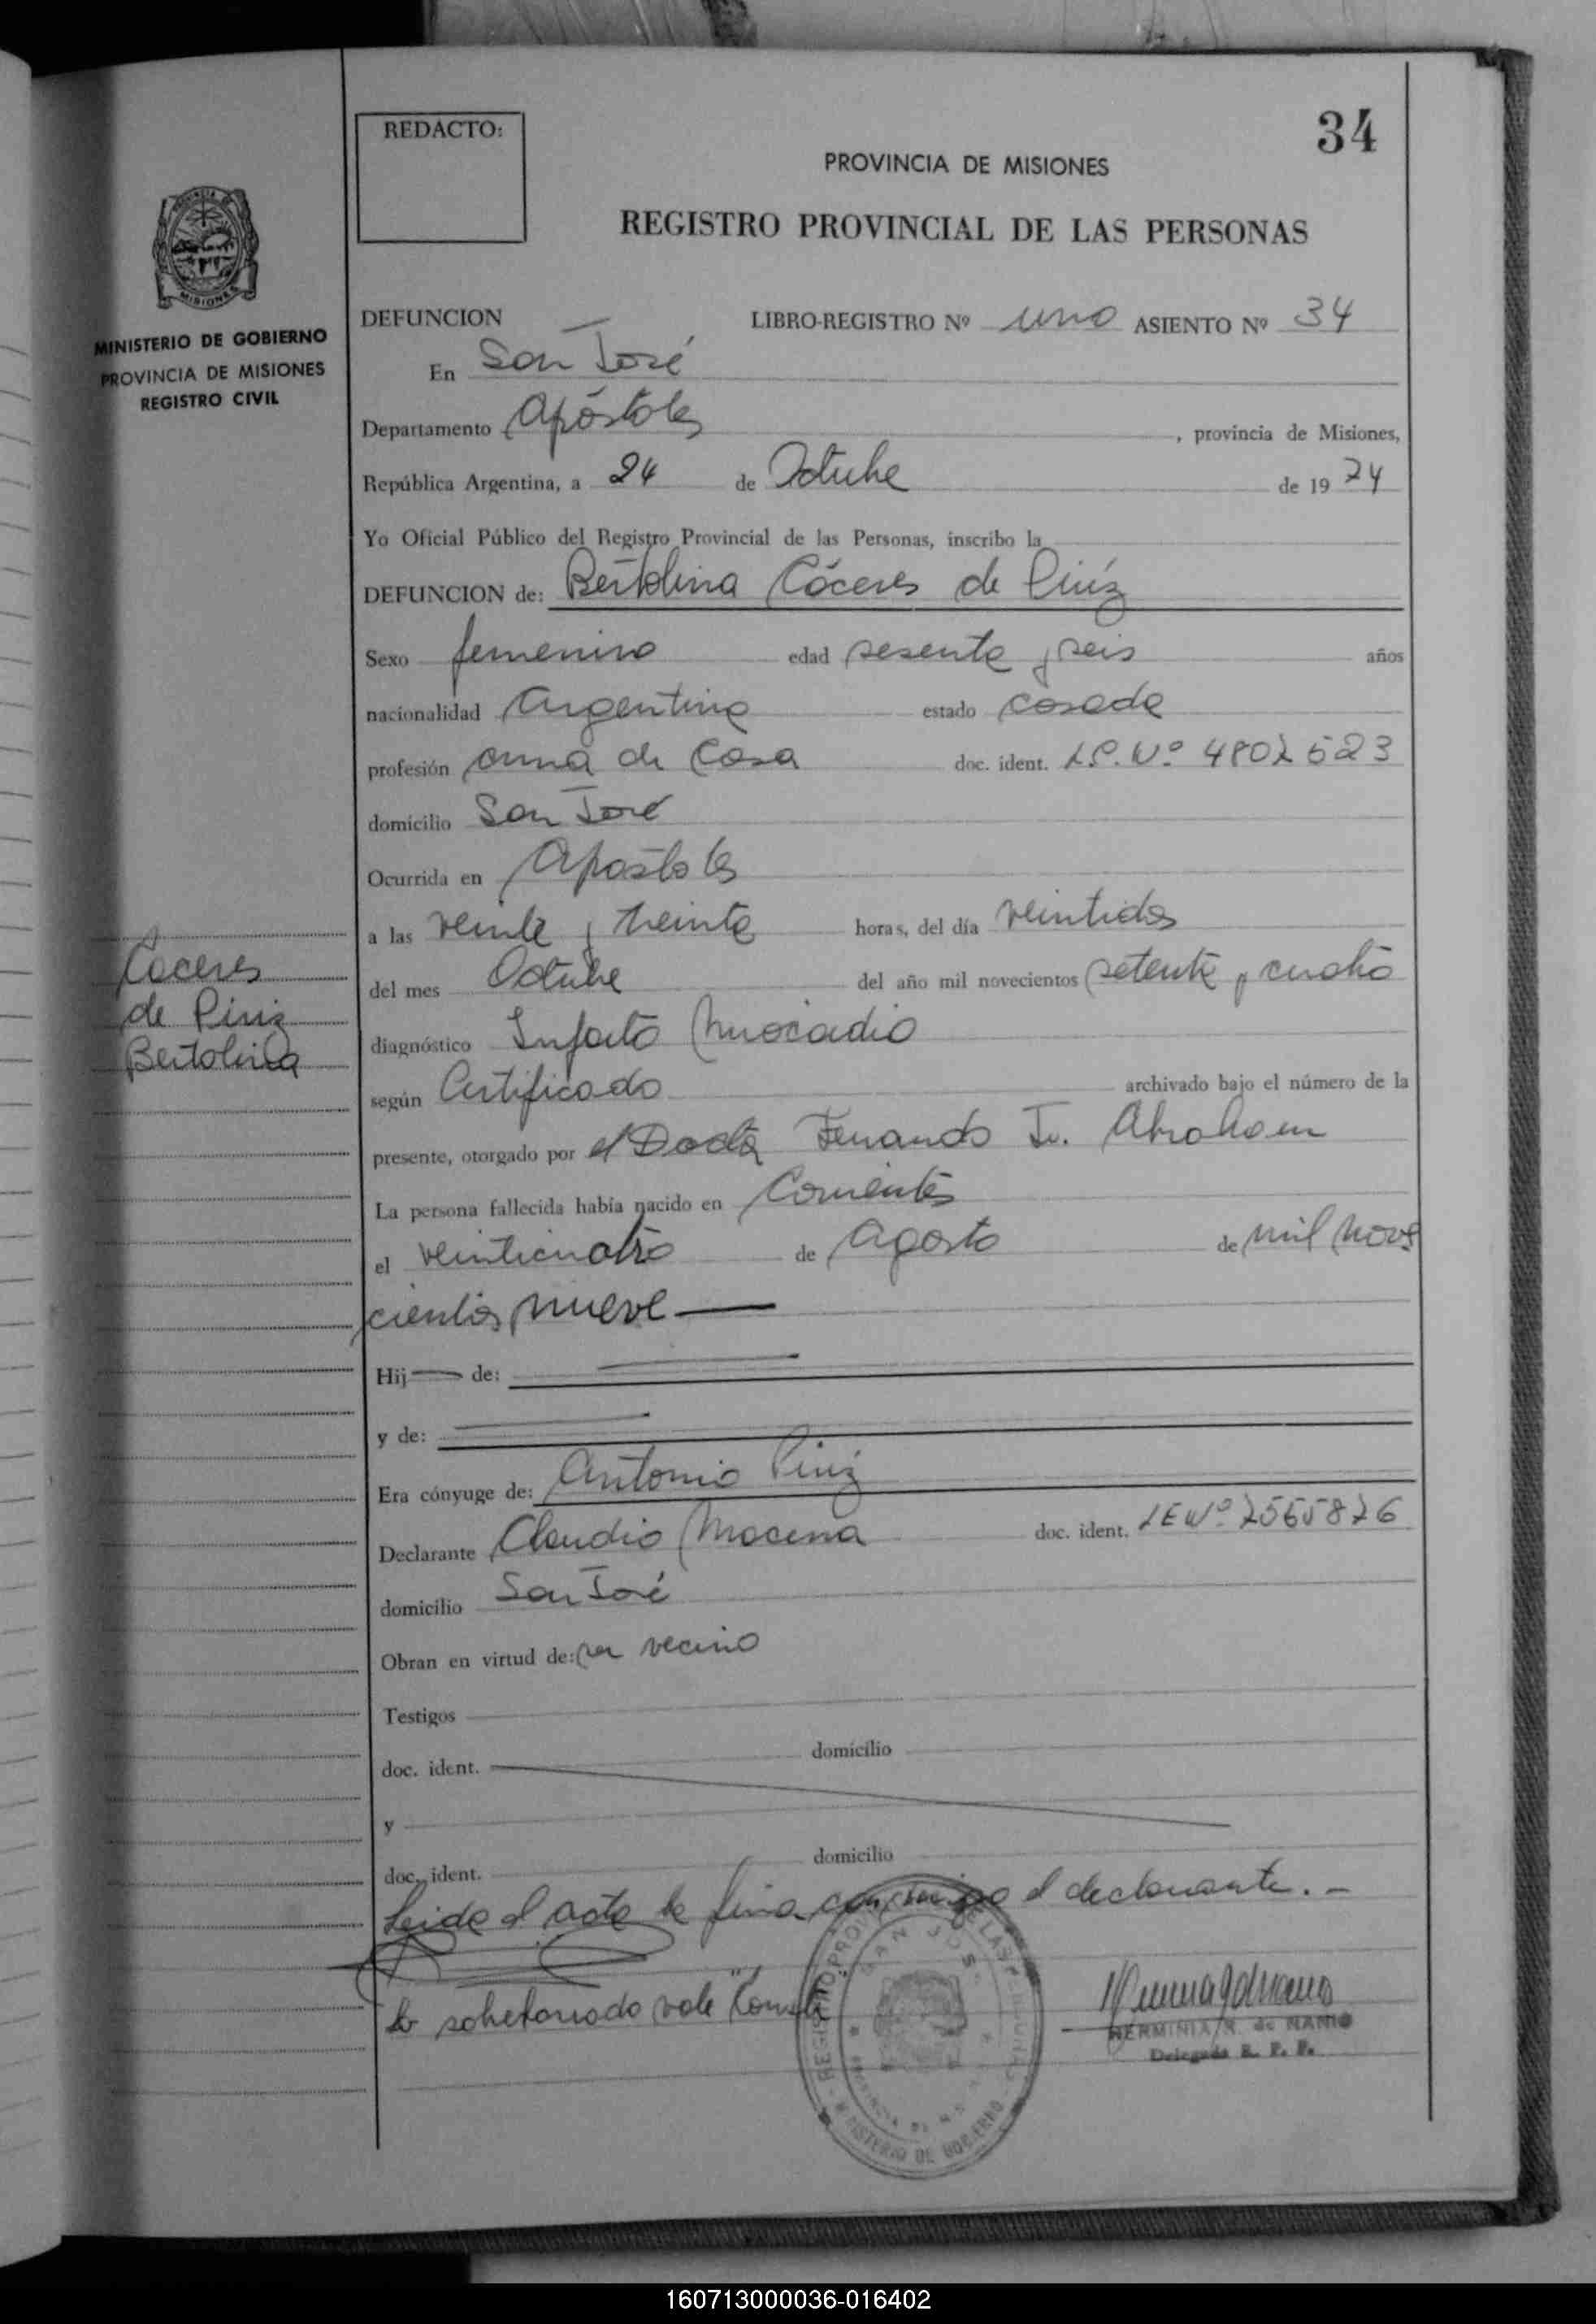 34
REDACTO:
PROVINCIA DE MISIONES
REGISTRO PROVINCIAL DE LAS PERSONAS
MISIONES
MINISTERIO DE GOBIERNO
PROVINCIA DE MISIONES
REGISTRO CIVIL
DEFUNCION LIBRO-REGISTRO Nº uno ASIENTO Nº 34
En San José
Departamento Apóstoles, provincia de Misiones,
República Argentina, a 24 de Octubre de 1974
Yo Oficial Público del Registro Provincial de las Personas, inscribo la
DEFUNCION de: Bertolina Cáceres de Piriz
Sexo femenino edad sesenta y seis años
nacionalidad Argentina estado casada
profesión ama de Casa doc. ident. L.C. Nº 4802523
domicilio San José
Ocurrida en Apóstoles
a las veinte y treinta horas, del día veintidos
del mes Octubre del año mil novecientos setenta y cuatro
Caceres
de Piriz
Bertolina
diagnóstico Infarto Miocadio
según Certificado archivado bajo el número de la
presente, otorgado por el Doctor Fernando J. Abraham
La persona fallecida había nacido en Corrientes
el veinticuatro de Agosto de mil nove
cientos nueve
Hij de:
y de:
Era cónyuge de: Antonio Piriz
Declarante Claudio Macena doc. ident. LE Nº 2565826
domicilio San José
Obran en virtud de: ser vecino
Testigos
doc. ident. domicilio
y
doc. ident. domicilio
Leida el acta la firma conmigo el declarante.-
lo sobreborrado vale
HERMINIA R. de NANIO
Delegada R. P. P.
REGISTRO PROVINCIAL DE LAS PERSONAS
SAN JOSE
PROVINCIA DE MISIONES
MINISTERIO DE GOBIERNO
160713000036-016402